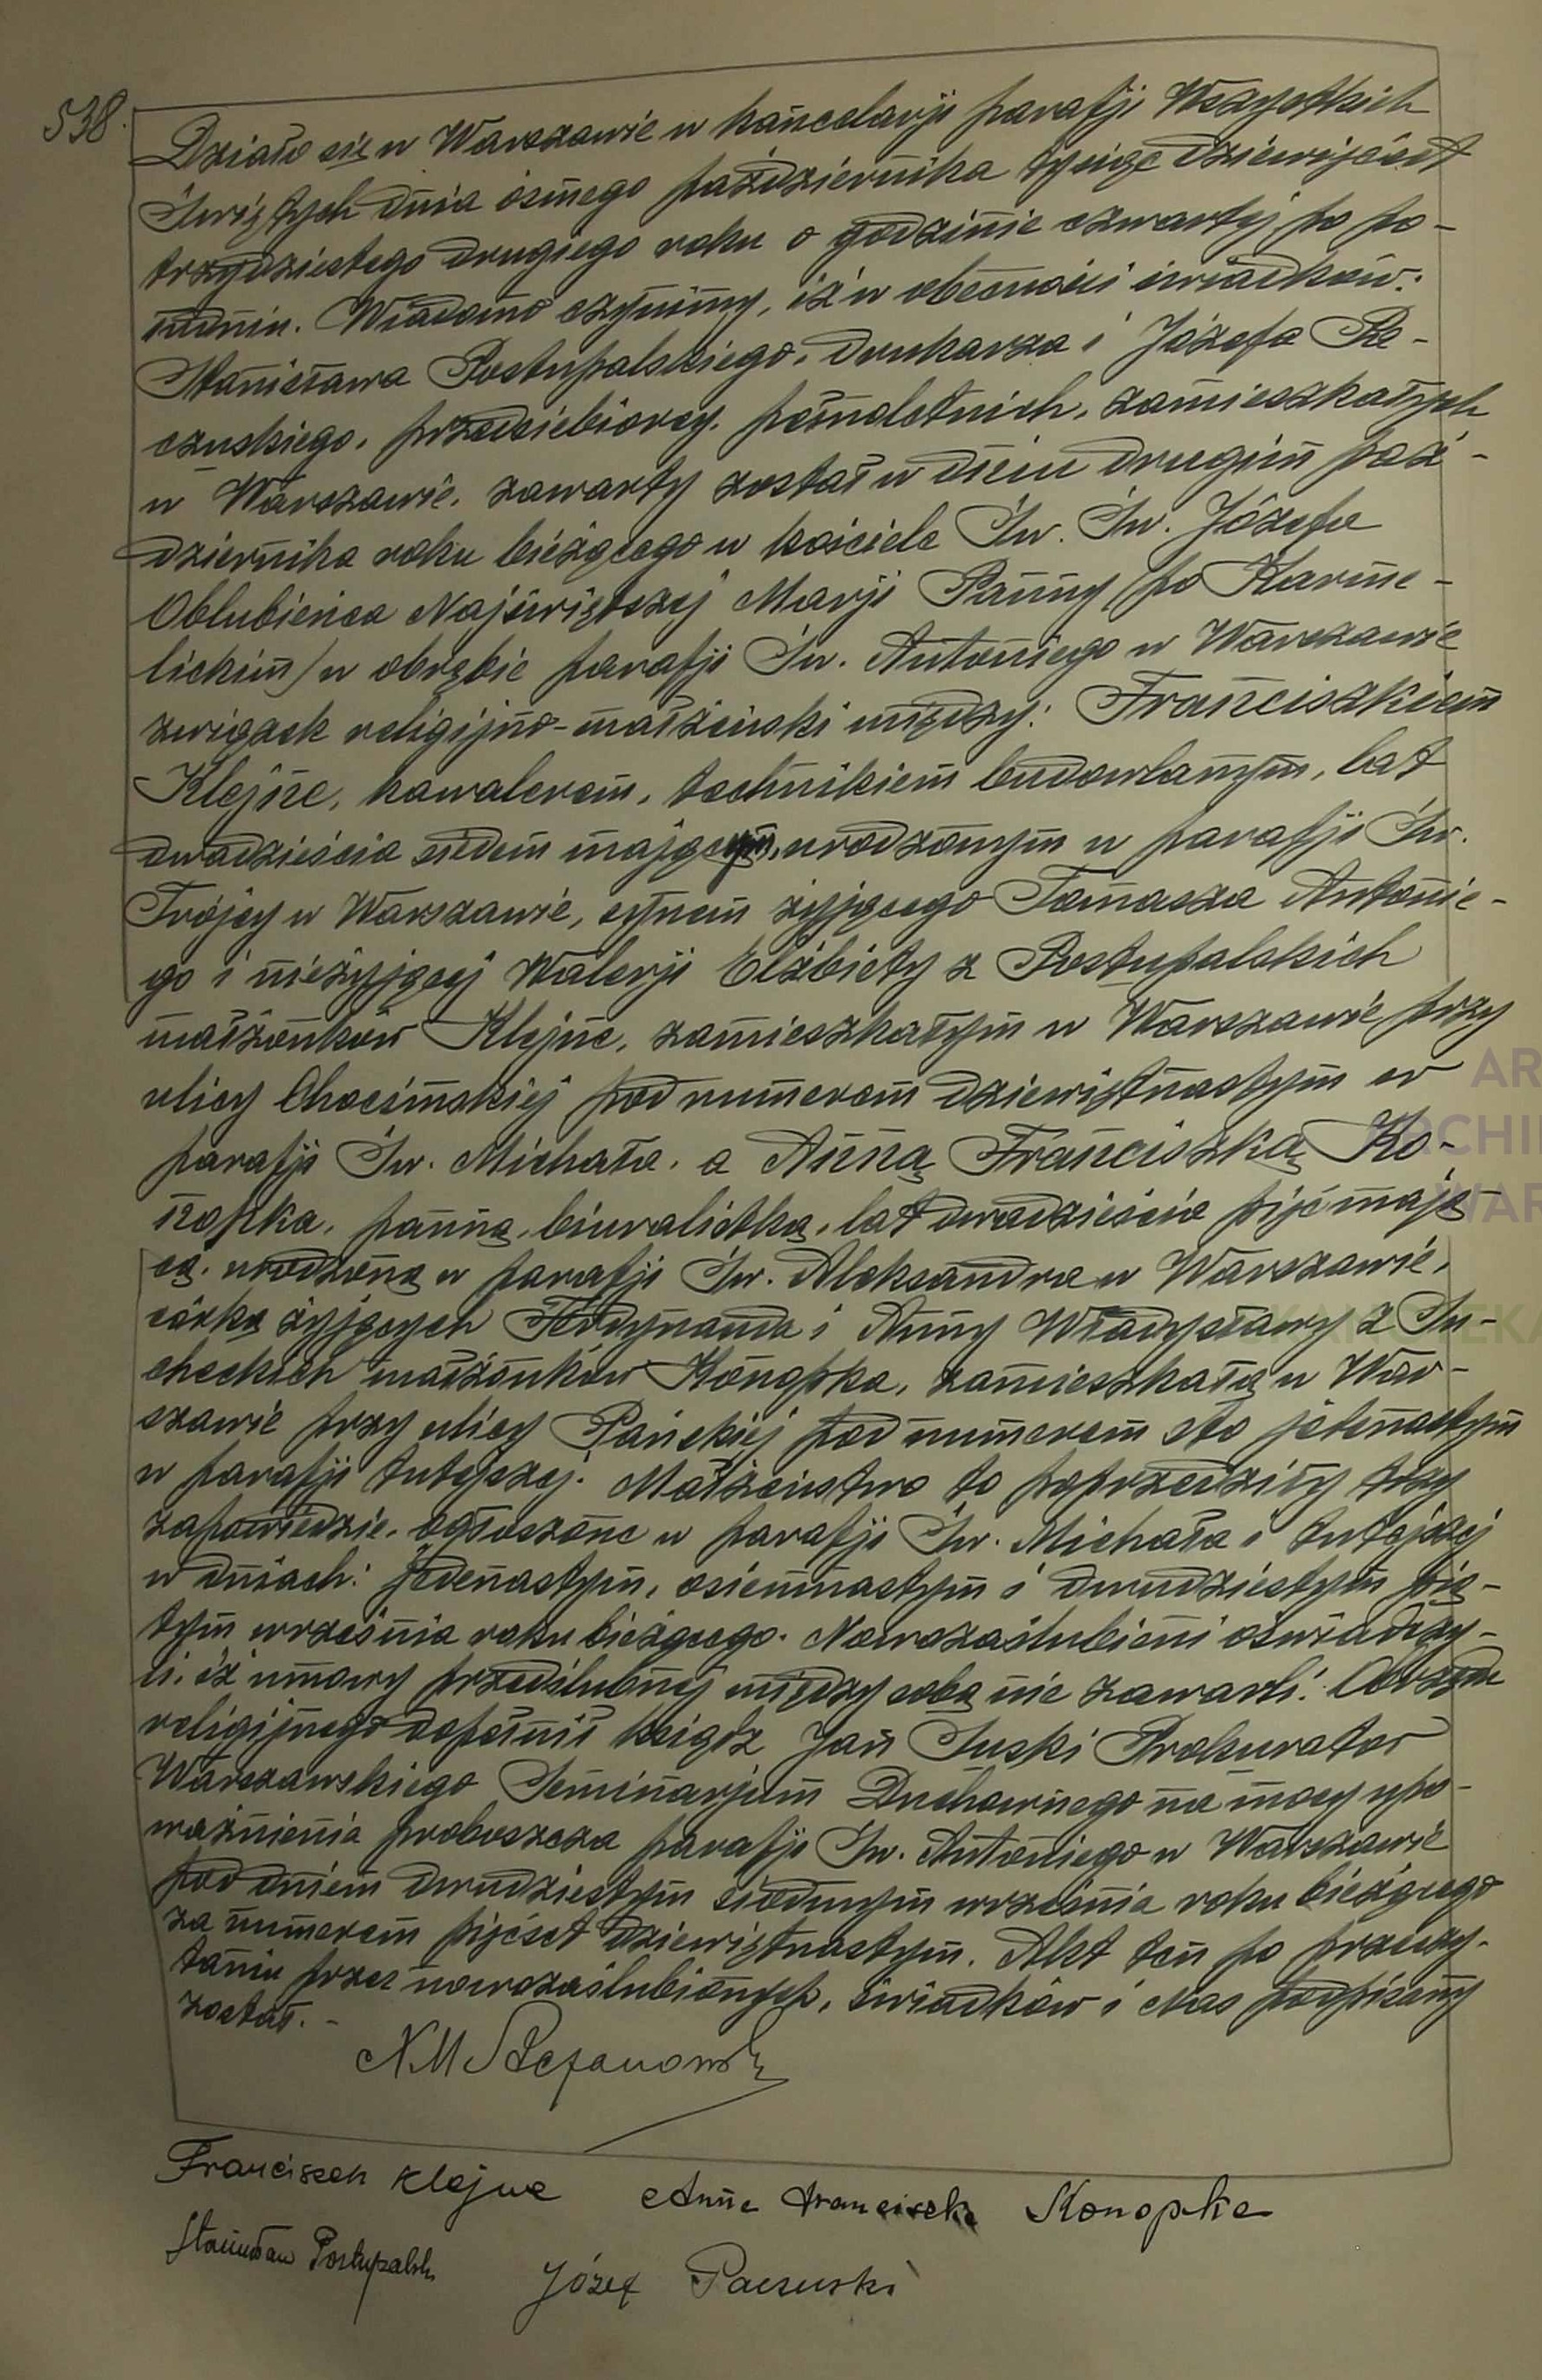 538.
Działo się w Warszawie w kancelarji parafji Wszystkich
Świętych dnia ósmego października tysiąc dziewięćset
trzydziestego drugiego roku o godzinie czwartej po po-
łudniu. Wiadomo czynimy, iż w obecności świadków:
Stanisława Postupalskiego, drukarza i Józefa Pa-
czuskiego, przedsiębiorcy, pełnoletnich, zamieszkałych
w Warszawie, zawarty został w dniu drugim paź-
dziernika roku bieżącego w kościele Św. Św. Józefa
Oblubieńca Najświętszej Marji Panny /po Karme-
lickim/ w obrębie parafji Św. Antoniego w Warszawie
związek religijno-małżeński między: Franciszkiem
Klejne, kawalerem, technikiem budowlanym, lat
dwadzieścia siedem mającym, urodzonym w parafji Św.
Trójcy w Warszawie, synem żyjącego Tomasza Antonie-
go i nieżyjącej Walerji Elżbiety z Postupalskich
małżonków Klejne, zamieszkałym w Warszawie przy
ulicy Chocimskiej pod numerem dziewiętnastym w
parafji Św. Michała, a Anną Franciszką Ko-
nopka, panną, biuralistką, lat dwadzieścia pięć mają-
cą, urodzoną w parafji Św. Aleksandra w Warszawie,
córką żyjących Ferdynanda i Anny Władysławy z Su-
checkich małżonków Konopka, zamieszkałą w War-
szawie przy ulicy Pańskiej pod numerem sto jedenastym
w parafji tutejszej. Małżeństwo to poprzedziły trzy
zapowiedzie, ogłoszone w parafji Św. Michała i tutejszej
w dniach: jedenastym, osiemnastym i dwudziestym pią-
tym września roku bieżącego. Nowozaślubieni oświadczy-
li, iż umowy przedślubnej między sobą nie zawarli. Obrzędu
religijnego dopełnił ksiądz Jan Suski Prokurator
Warszawskiego Seminarjum Duchownego na mocy upo-
ważnienia proboszcza parafji Św. Antoniego w Warszawie
pod dniem dwudziestym siódmym września roku bieżącego
za numerem pięćset dziewiętnastym. Akt ten po przeczy-
taniu przez nowozaślubionych, świadków i Nas podpisany
został. -
Franciszek Klejne Anna Franciszka Konopka
Stanisław Postupalski Józef Paczuski
AR
ARCHI
WAR